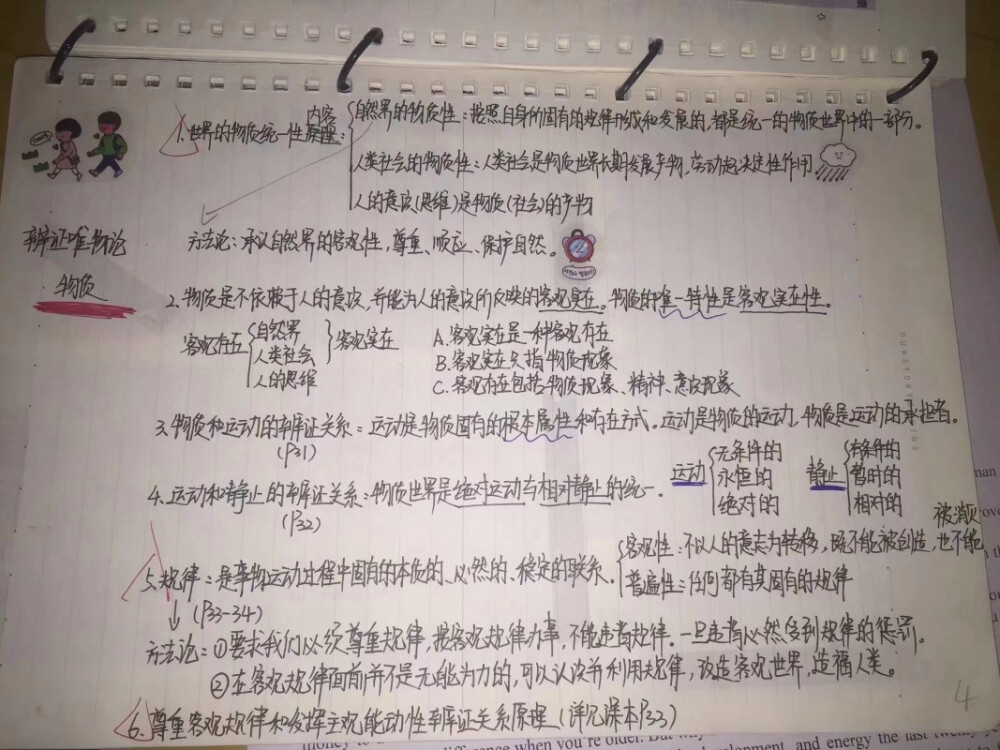 内容
1.世界的物质统一性原理:
自然界的物质性:按照自身所固有的规律形成和发展的,都是统一的物质世界中的一部分。
人类社会的物质性:人类社会是物质世界长期发展产物,劳动起决定性作用
人的意识(思维)是物质(社会)的产物
方法论:承认自然界的客观性,尊重、顺应、保护自然。
辩证唯物论
物质
2.物质是不依赖于人的意识,并能为人的意识所反映的客观实在。物质的唯一特性是客观实在性。
客观存在
自然界
人类社会
人的思维
客观实在
A.客观实在是一种客观存在
B.客观实在只指物质现象
C.客观存在包括物质现象、精神、意识现象
3.物质和运动的辩证关系:运动是物质固有的根本属性和存在方式。运动是物质的运动,物质是运动的承担者。
(P31)
4.运动和静止的辩证关系:物质世界是绝对运动与相对静止的统一.
(P32)
运动
无条件的
永恒的
绝对的
静止
有条件的
暂时的
相对的
5.规律:是事物运动过程中固有的本质的、必然的、稳定的联系.
(P33-34)
客观性:不以人的意志为转移,既不能被创造,也不能
被消灭
普遍性:任何都有其固有的规律
方法论:①要求我们必须尊重规律,按客观规律办事,不能违背规律。一旦违背必然受到规律的惩罚。
②在客观规律面前并不是无能为力的,可以认识并利用规律,改造客观世界,造福人类。
6.尊重客观规律和发挥主观能动性辩证关系原理(详见课本P33)
4